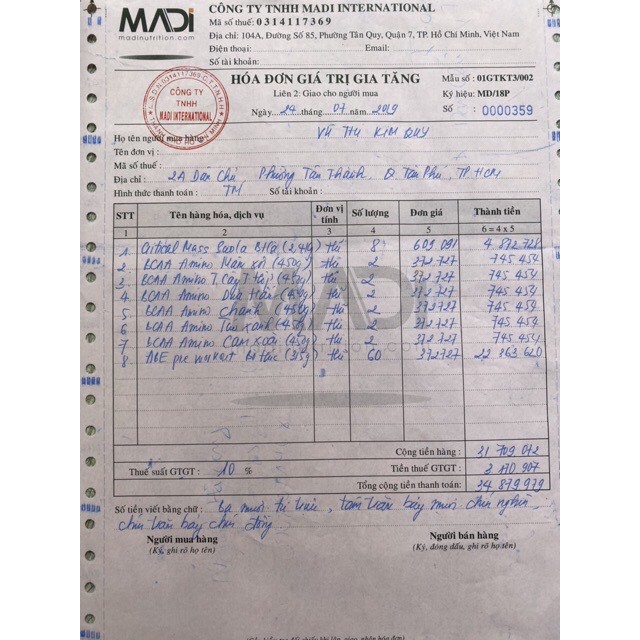 MADI
madinutrition.com
CÔNG TY TNHH MADI INTERNATIONAL
Mã số thuế: 0314117369
Địa chỉ: 104A, Đường Số 85, Phường Tân Quy, Quận 7, TP. Hồ Chí Minh, Việt Nam
Điện thoại: Email:
Số tài khoản:
HÓA ĐƠN GIÁ TRỊ GIA TĂNG
Liên 2: Giao cho người mua
Ngày 24 tháng 07 năm 2019
Mẫu số : 01GTKT3/002
Ký hiệu: MD/18P
Số : 0000359
S.D.N:0314117369-C.T.T.N.H.H
CÔNG TY
TNHH
MADI INTERNATIONAL
Họ tên người mua hàng VŨ THỊ KIM QUY
Tên đơn vị :
Mã số thuế :
Địa chỉ : 2A Dân Chủ, Phường Tân Thành, Q. Tân Phú, TP.HCM
Hình thức thanh toán : TM Số tài khoản:
STT Tên hàng hóa, dịch vụ Đơn vị tính Số lượng Đơn giá Thành tiền
1 2 3 4 5 6 = 4 x 5
1 Critical Mass 8 609 091 4 872 728
2 BCAA Amino (450g) 2 372 727 745 454
3 BCAA Amino 2 372 727 745 454
4 BCAA Amino Dưa Hấu (450g) 2 372 727 745 454
5 BCAA Amino Chanh (450g) 2 372 727 745 454
6 BCAA Amino Táo xanh (450g) 2 372 727 745 454
7 BCAA Amino Cam xoài (450g) 2 372 727 745 454
8 ABE pre workout (315g) 60 372 727 22 363 620
Cộng tiền hàng : 31 709 072
Thuế suất GTGT : 10 % Tiền thuế GTGT : 3 170 907
Tổng cộng tiền thanh toán: 34 879 979
Số tiền viết bằng chữ : Ba mươi tư triệu, tám trăm bảy mươi chín nghìn
chín trăm bảy chín đồng.
Người mua hàng Người bán hàng
(Ký, ghi rõ họ tên) (Ký, đóng dấu, ghi rõ họ tên)
(Cần kiểm tra đối chiếu khi lập, giao, nhận hóa đơn)